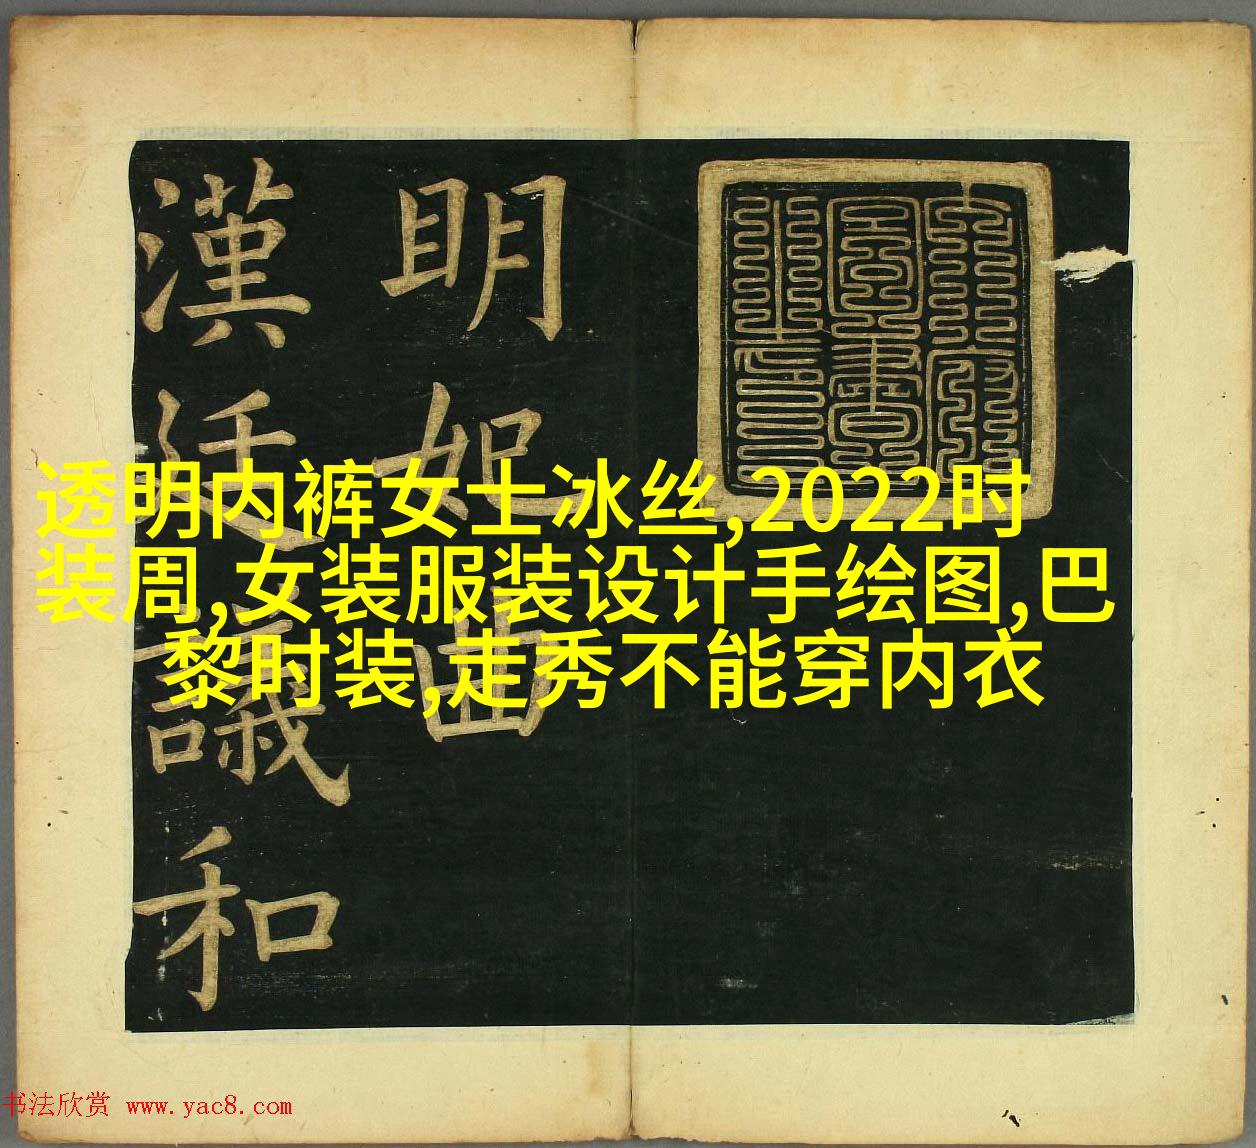 明妃曲
漢廷議和
透明内裤女士冰丝,2022时
装周,女装服装设计手绘图,巴
黎时装,走秀不能穿内衣
书法欣赏 www.yac8.com